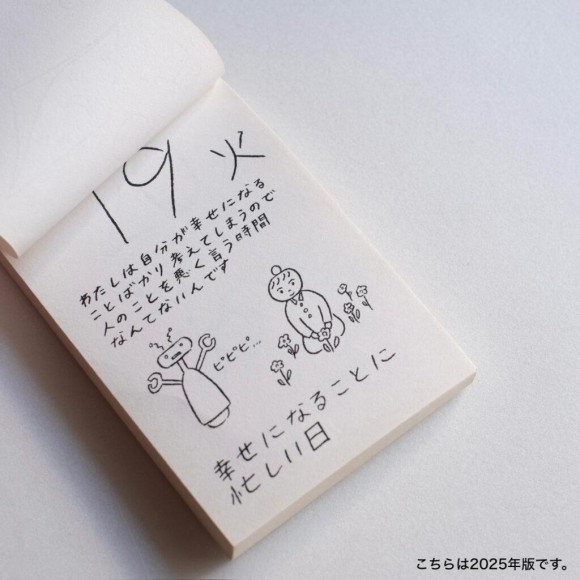 19 火
わたしは自分が幸せになる
ことばかり考えてしまうので
人のことを悪く言う時間
なんてないんです
ピピピ…
幸せになることに
忙しい日
こちらは2025年版です。